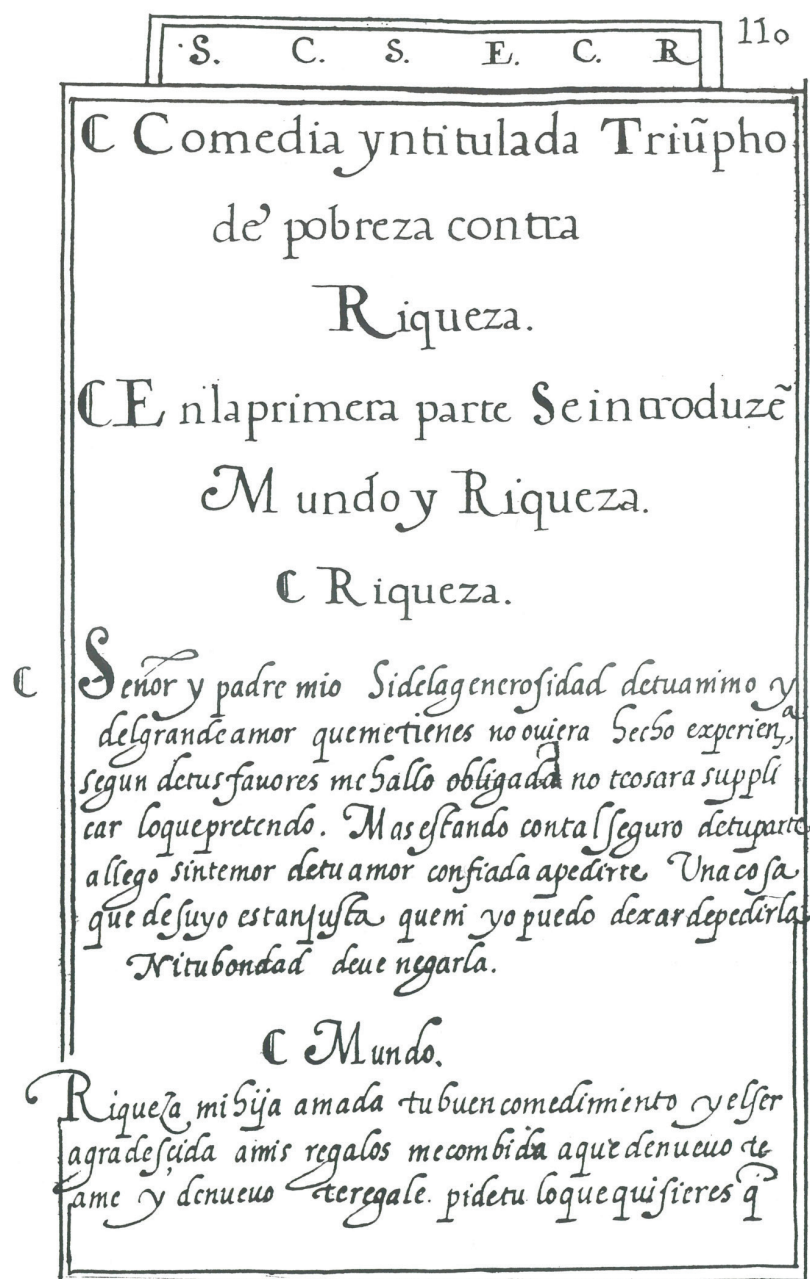 S. C. S. E. C. R
110
C Comedia yntitulada Triũpho
de pobreza contra
Riqueza.
C En'la primera parte Se introduzẽ
Mundo y Riqueza.
C Riqueza.
C Señor y padre mio Si de la generosidad de tu animo y
del grande amor que me tienes no ouiera hecho experienᵃ,
segun de tus fauores me hallo obligada no te osara suppli
car lo que pretendo. Mas estando con tal seguro de tu parte
allego sin temor de tu amor confiada a pedirte Una cosa
que de suyo es tan justa que ni yo puedo dexar de pedirla
Ni tu bondad deue negarla.
C Mundo.
Riqueza mi hija amada tu buen comedimiento y el ser
agradescida a mis regalos me combida a que de nueuo te
ame y de nueuo te regale. pide tu lo que quisieres q̃